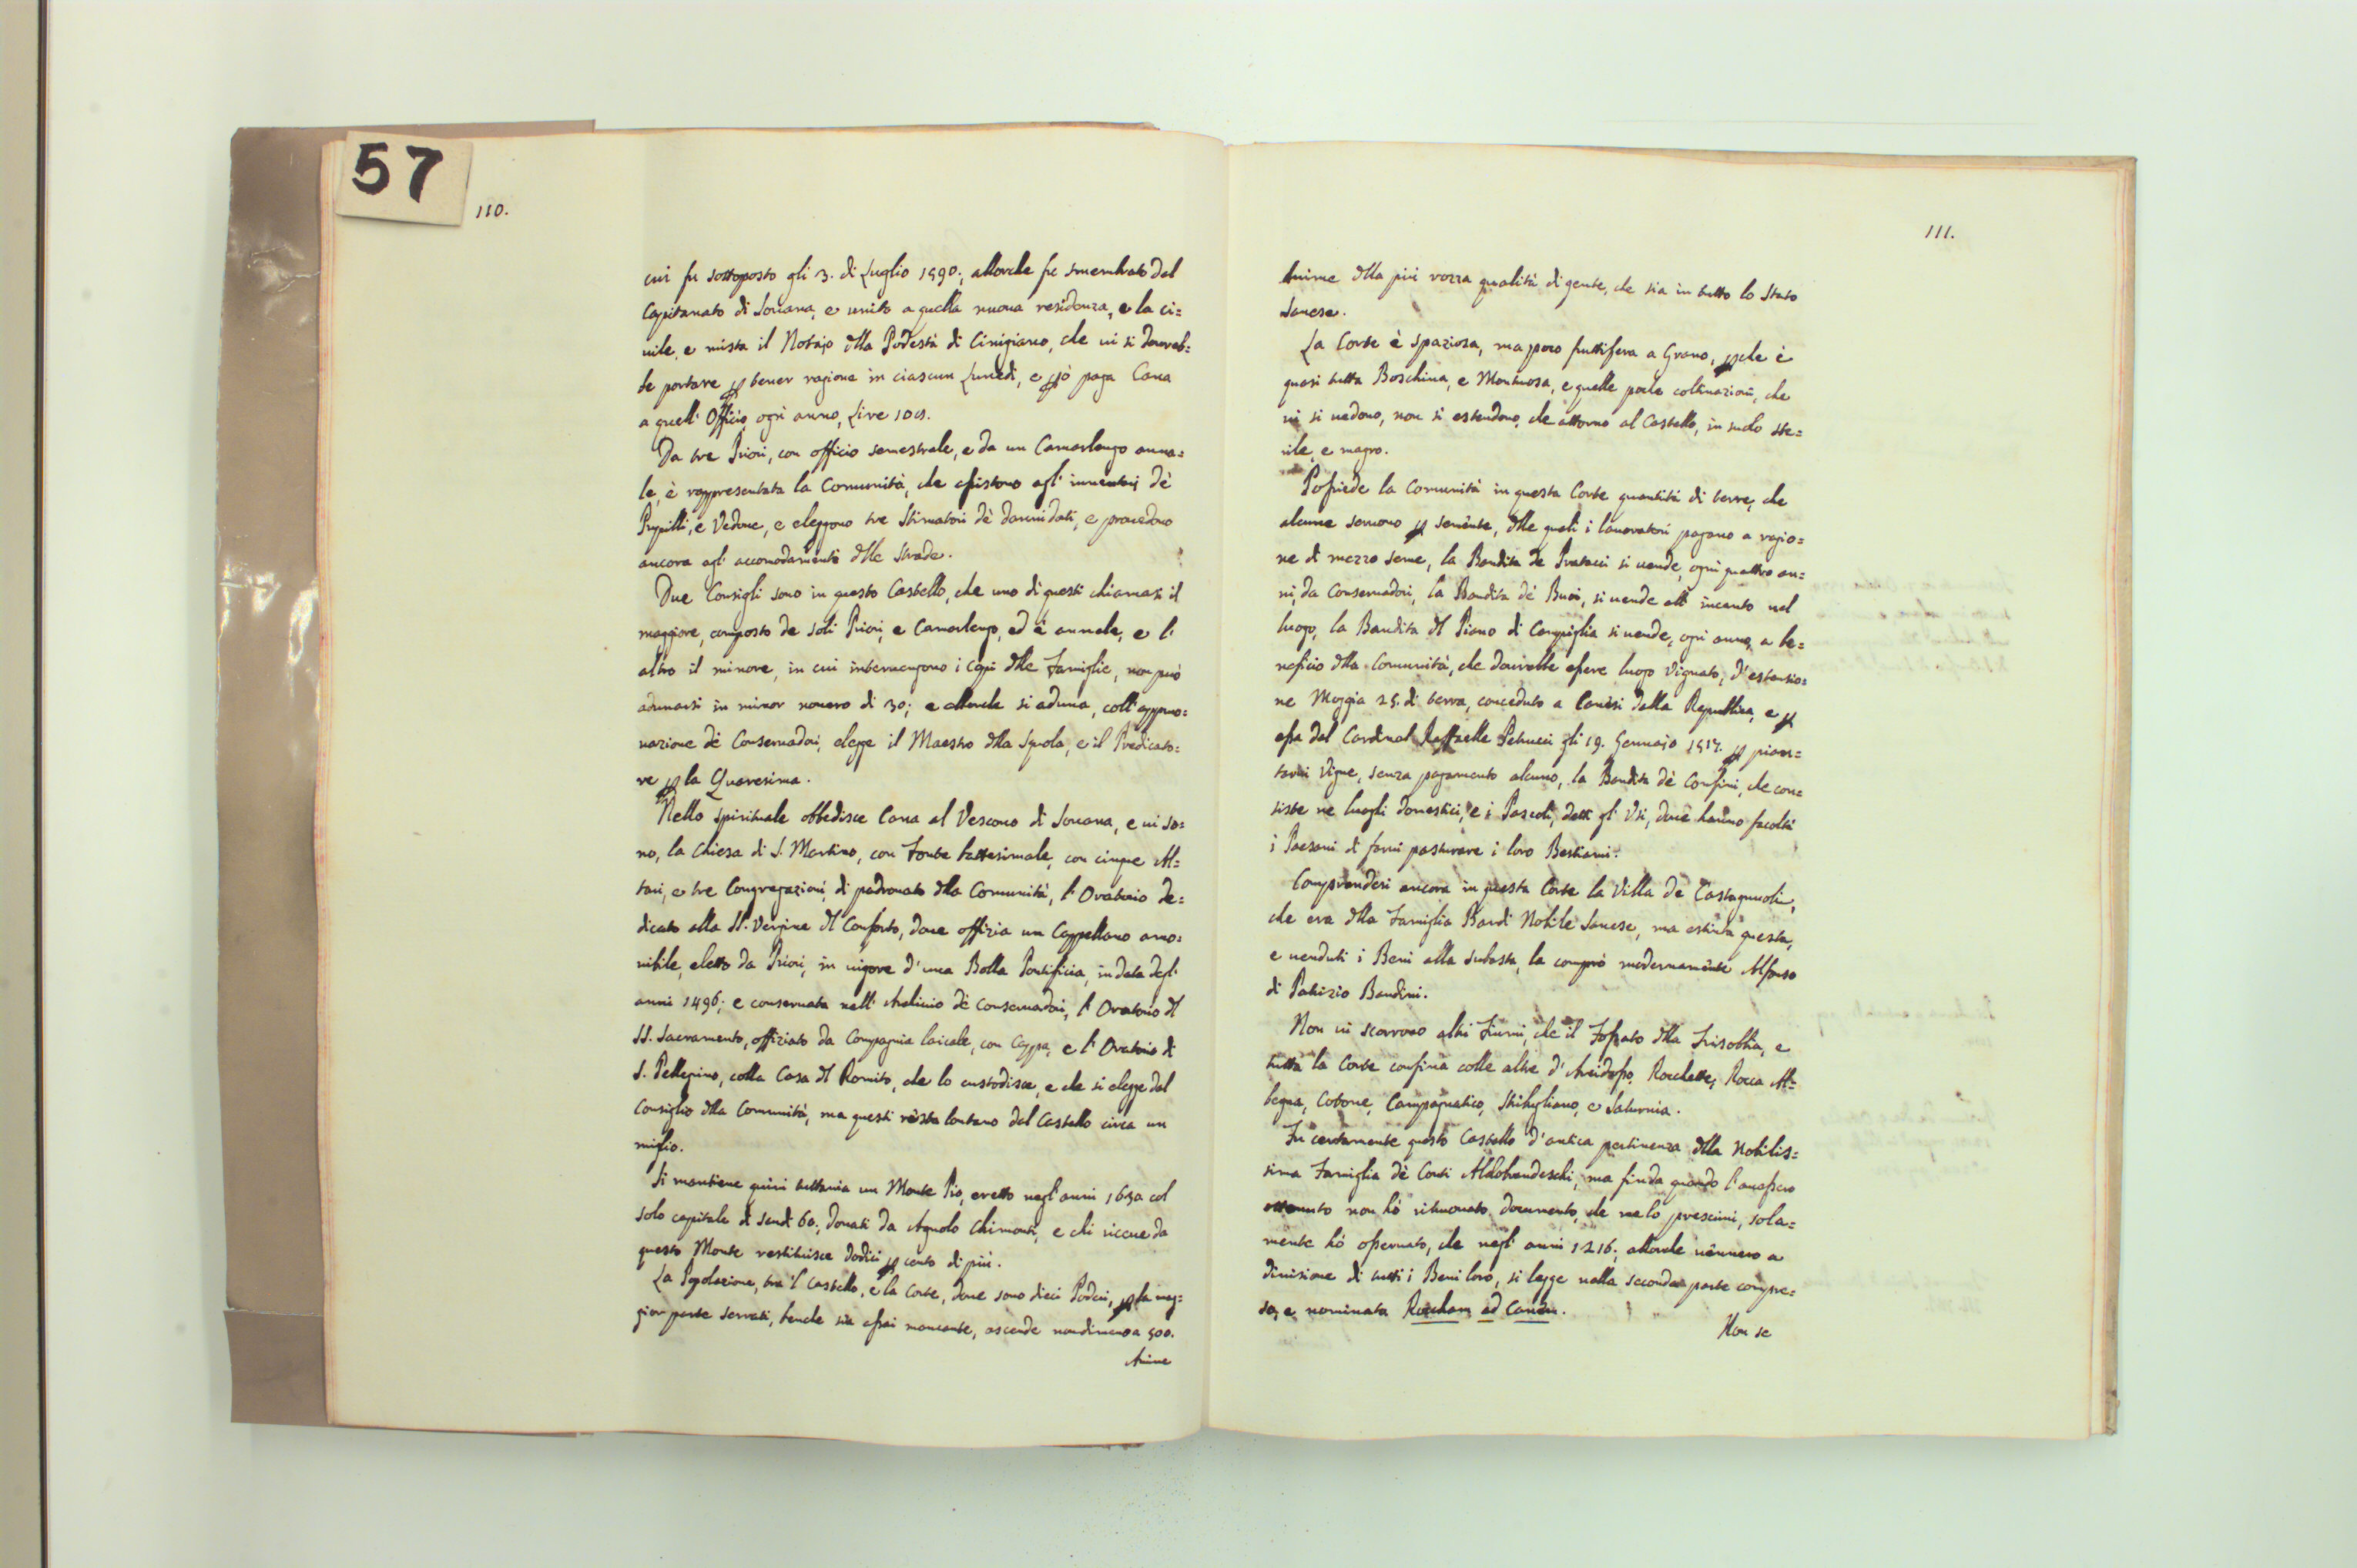 57
110.
cui fu sottoposto gli 3. di Luglio 1590; allorche fu smembrato dal
Capitanato di Souana, e unito a quella nuoua residenza, e la ci=
uile, e mista il Notajo dlla Podestà di Cinigiano, che ui si doureb=
be portare p tener ragione in ciascun Lunedì, e pciò paga Cana
a quell' Officio, ogni anno, Lire
Da tre Priori, con officio semestrale, e da un Camarlengo annua=
le, è rappresentata la Comunità, che assistono agl' inuentarj dè
Pupilli, e Vedoue, e eleggono tre Stimatori dè dannidati, e prouedono
ancora agl' accomodamenti dlle strade.
Due Consigli sono in questo Castello, che uno di questi chiamasi il
maggiore, composto de soli Priori, e Camarlengo, ed è annale, e l'
altro il minore, in cui interuengono i Capi dlle Famiglie, non può
adunarsi in minor nouero di 30; e allorche si aduna, coll' appro=
uazione dè Conseruadori, elegge il Maestro dlla Squola, e il Predicato=
re p la Quaresima.
Nello spirituale obbedisce Cana al Vescouo di Souana, e ui so=
no, la Chiesa di S. Martino, con Fonte battesimale, con cinque Al=
tari, e tre Congregazioni, di padronato dlla Comunità, l' Oratorio de=
dicato alla SS. Vergine dl Conforto, doue offizia un Cappellano amo=
uibile, eletto da Priori, in uigore d' una Bolla Pontificia, in data degl'
anni 1496; e conseruata nell' Archiuio dè Conseruadori, l' Oratorio dl
SS. Sacramento, offiziato da Compagnia laicale, con Cappa, e l' Oratorio di
S. Pellegrino, colla Casa dl Romito, che lo custodisce, e che si elegge dal
Consiglio dlla Comunità, ma questi rèsta lontano dal Castello circa un
miglio.
Si mantiene quiui tuttauia un Monte Pio, eretto negl' anni 1630 col
solo capitale di scudi 60; donati da Agnolo Chimenti, e chi riceue da
questo Monte restituisce dodici p cento di più.
La Popolazione, tra 'l Castello, e la Corte, doue sono dieci Poderi, p la mag=
gior parte serrati, benche sia assai mancante, ascende nondimeno a 500.
Anime
111.
Anime dlla più rozza qualità di gente, che sia in tutto lo Stato
Sanese.
La Corte è spaziosa, ma poco fruttifera a Grano, pche è
quasi tutta Boschiua, e Montuosa, e quelle poche coltiuazioni, che
ui si uedono, non si estendono, che attorno al Castello, in suolo ste=
rile, e magro.
Possiede la Comunità in questa Corte quantità di terre, che
alcune seruono p semènte, dlle quali i lauoratori pagano a ragio=
ne di mezzo seme, la Bandita de Pratacci si uende, ogni quattro an=
ni, da Conseruadori, la Bandita dè Buoi, si uende all' incanto nel
luogo, la Bandita dl Piano di Campiglia si uende, ogni anno, a be=
neficio dlla Comunità, che dourebbe essere luogo Vignato, d' estensio=
ne Moggia 25. di terra, conceduto a Canèsi dalla Republica, e p
essa dal Cardinal Raffaelle Petrucci gli 19. Gennajo 1517. p pian=
tarui Vigne, senza pagamento alcuno, la Bandita dè Confini, che con=
siste ne luoghi domestici, e i Pascoli, detti gl' Usi, doue hanno facoltà
i Paesani di farui pasturare i loro Bestiami.
Comprendesi ancora in questa Corte la Villa de Castagnuoli,
che era dlla Famiglia Bardi Nobile Sanese, ma estinta questa,
e uenduti i Beni alla subasta, la comprò modernamente Alfonso
di Patrizio Bandini.
Non ui scorrono altri Fiumi, che il Fossato dlla Trisolla, e
tutta la Corte confina colle altre d' Arcidosso, Rocchette, Rocca Al=
begna, Cotone, Campagnatico, Stibugliano, e Saturnia.
Fu certamente questo Castello d' antica pertinenza dlla Nobilis=
sima Famiglia dè Conti Aldobrandeschi, ma fin da quando l' auessero
ottenuto non hò ritrouato documento, che me lo prescriui, sola=
mente hò osseruato, che negl' anni 1216; allorche uènnero a
diuisione di tutti i Beni loro, si legge nella seconda parte compre=
sa, e nominata Rocham ad Canam.
Non se